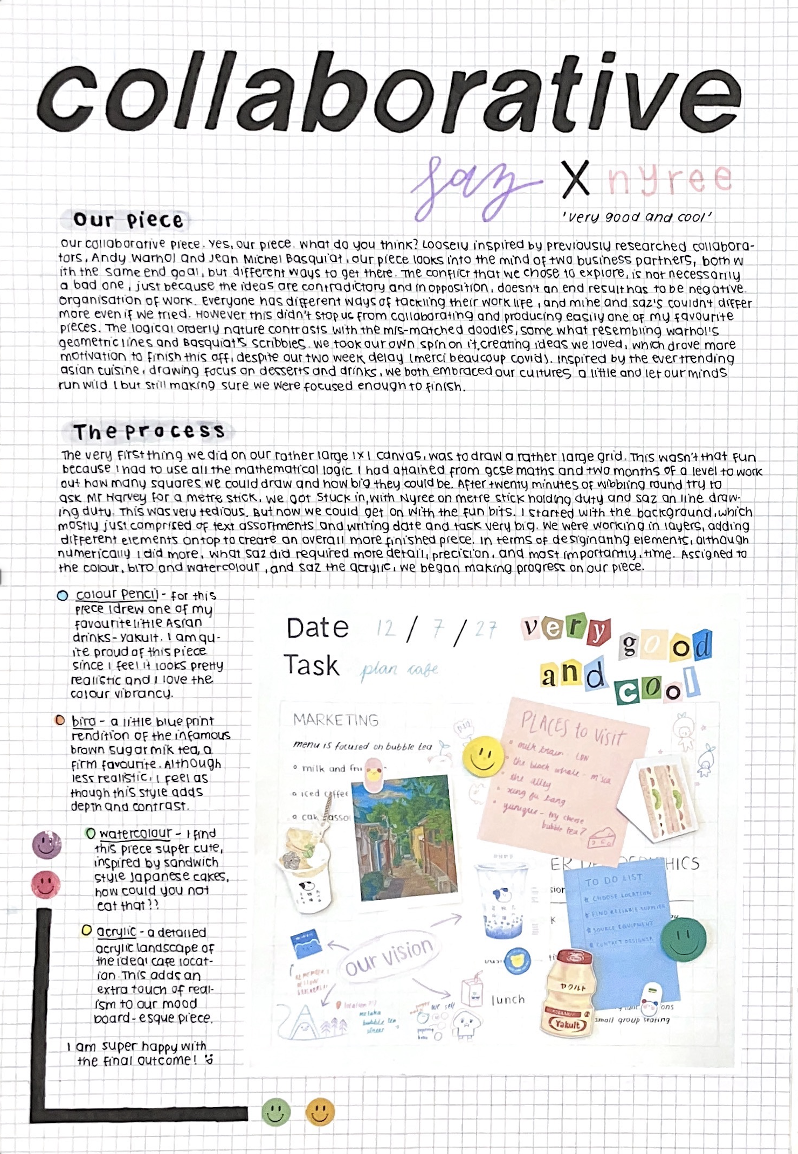 collaborative
saz X nyree
'very good and cool'
Our piece
Our collaborative piece. Yes, our piece. What do you think? Loosely inspired by previously researched collabora-
tors, Andy Warhol and Jean Michel Basquiat, our piece looks into the mind of two business partners, both w
ith the same end goal, but different ways to get there. The conflict that we chose to explore, is not necessarily
a bad one, just because the ideas are contradictory and in opposition, doesn't an end result has to be negative.
Organisation of work. Everyone has different ways of tackling their work life, and mine and saz's couldn't differ
more even if we tried. However this didn't stop us from collaborating and producing easily one of my favourite
pieces. The logical orderly nature contrasts with the mis-matched doodles, some what resembling warhol's
geometric lines and Basquiat's scribbles. We took our own spin on it, creating ideas we loved, which drove more
motivation to finish this off, despite our two week delay (merci beaucoup covid). Inspired by the ever trending
asian cuisine, drawing focus on desserts and drinks, we both embraced our cultures a little and let our minds
run wild! but still making sure we were focused enough to finish.
The process
The very first thing we did on our rather large 1x1 canvas, was to draw a rather large grid. This wasn't that fun
because I had to use all the mathematical logic I had attained from gcse maths and two months of a level to work
out how many squares we could draw and how big they could be. After twenty minutes of wibbling round try to
ask Mr Harvey for a metre stick, we got stuck in, with Nyree on metre stick holding duty and saz on line draw-
ing duty. This was very tedious. But now we could get on with the fun bits. I started with the background, which
mostly just comprised of text assortments and writing date and task very big. We were working in layers, adding
different elements on top to create an overall more finished piece. In terms of desiginating elements, although
numerically I did more, what saz did required more detail, precision, and most importantly, time. Assigned to
the colour, biro and watercolour, and saz the acrylic, we began making progress on our piece.
colour pencil - for this
piece I drew one of my
favourite little Asian
drinks - yakult. I am qu-
ite proud of this piece
since I feel it looks pretty
realistic and I love the
colour vibrancy.
biro - a little blue print
rendition of the infamous
brown sugar milk tea, a
firm favourite. Although
less realistic, I feel as
though this style adds
depth and contrast.
watercolour - I find
this piece super cute,
inspired by sandwich
style Japanese cakes,
how could you not
eat that!?
acrylic - a detailed
acrylic landscape of
the ideal cafe locat-
ion. This adds an
extra touch of real-
ism to our mood
board-esque piece.
I am super happy with
the final outcome!
Date 12 / 7 / 27
Task plan cafe
very good
and cool
MARKETING
menu is focused on bubble tea
milk and
iced
PLACES to visit
milk train
the black whale
the alley
xing fu tang
yunique - try cheese
bubble tea?
TO DO LIST
CHOOSE LOCATION
FIND RELIABLE SUPPLIERS
SOURCE EQUIPMENT
CONTACT DESIGNER
our vision
lunch
ヤクルト
Yakult
small group tearing